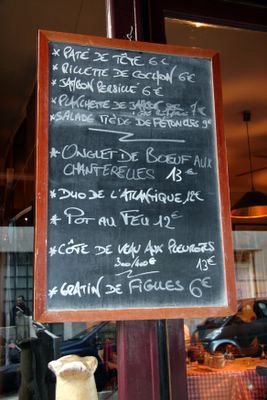 * PATÉ DE TÊTE 6 €
* RILLETTE DE COCHON 6 €
* JAMBON PERSILLÉ 6 €
* PLANCHETTE DE JAMBON 7 €
* SALADE TIÈDE DE PÉTONCLES 9 €
* ONGLET DE BOEUF AUX
CHANTERELLES 13 €
* DUO DE L'ATLANTIQUE 12 €
* POT AU FEU 12 €
* CÔTE DE VEAU AUX PLEUROTES
300/400 G 13 €
* GRATIN DE FIGUES 6 €